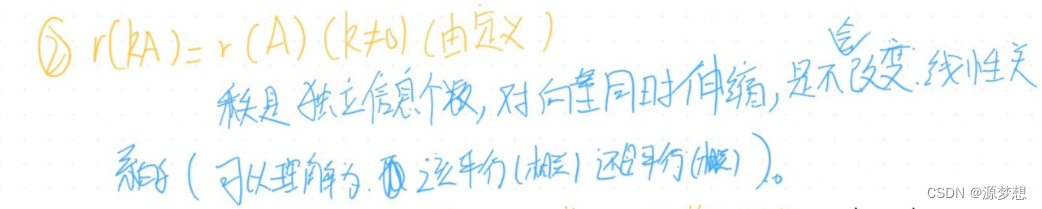 ② r(kA)=r(A)(k≠0)(由定义)
秩是独立信息个数,对向量同时伸缩,是不会改变线性关
系的(可以理解为.该平行(相关)还是平行(相关))。
CSDN @源梦想